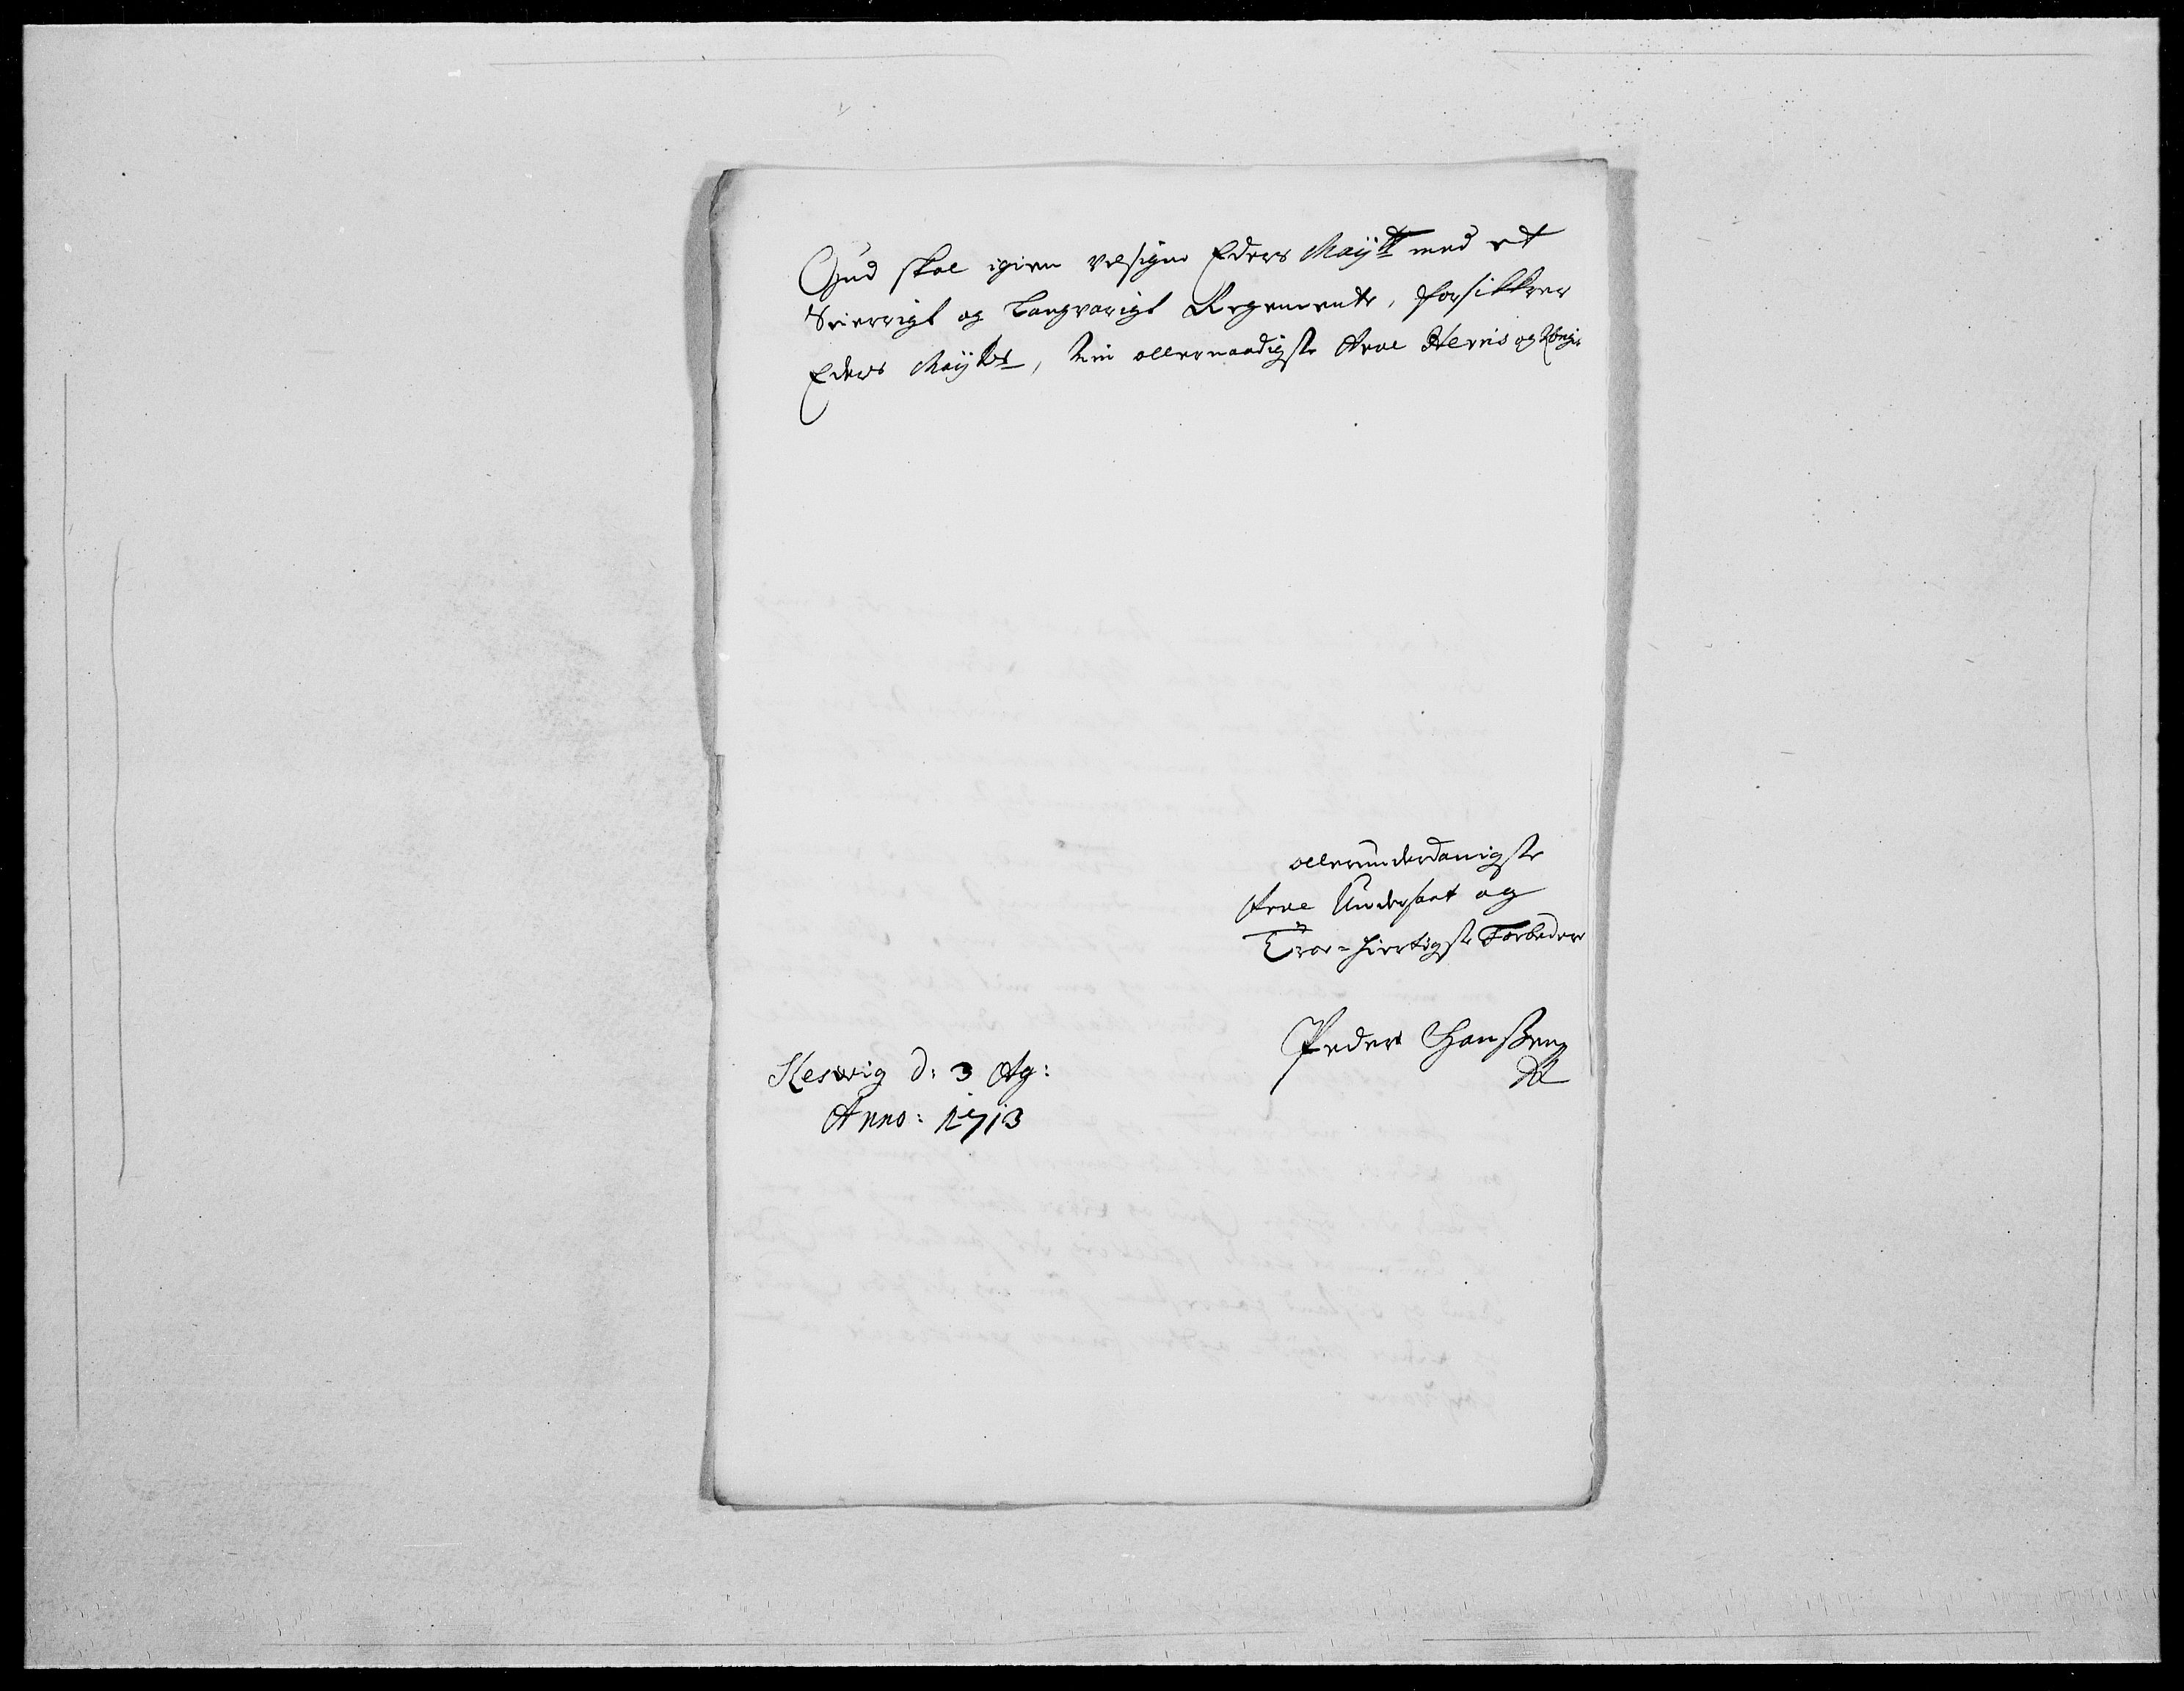 Gud skal igien velsigne Eders Maytt med et
Seierrigt og Langvarigt Regemente, forsikkrer
Eders Maytts, Min allernaadigste Arve Herris og Kongis
allerunderdanigste
Arve Undersaat og
Troe-hiertigste Forbeder
Peder Hanßen
Sleswig d: 3 Ag:
Anno: 1713